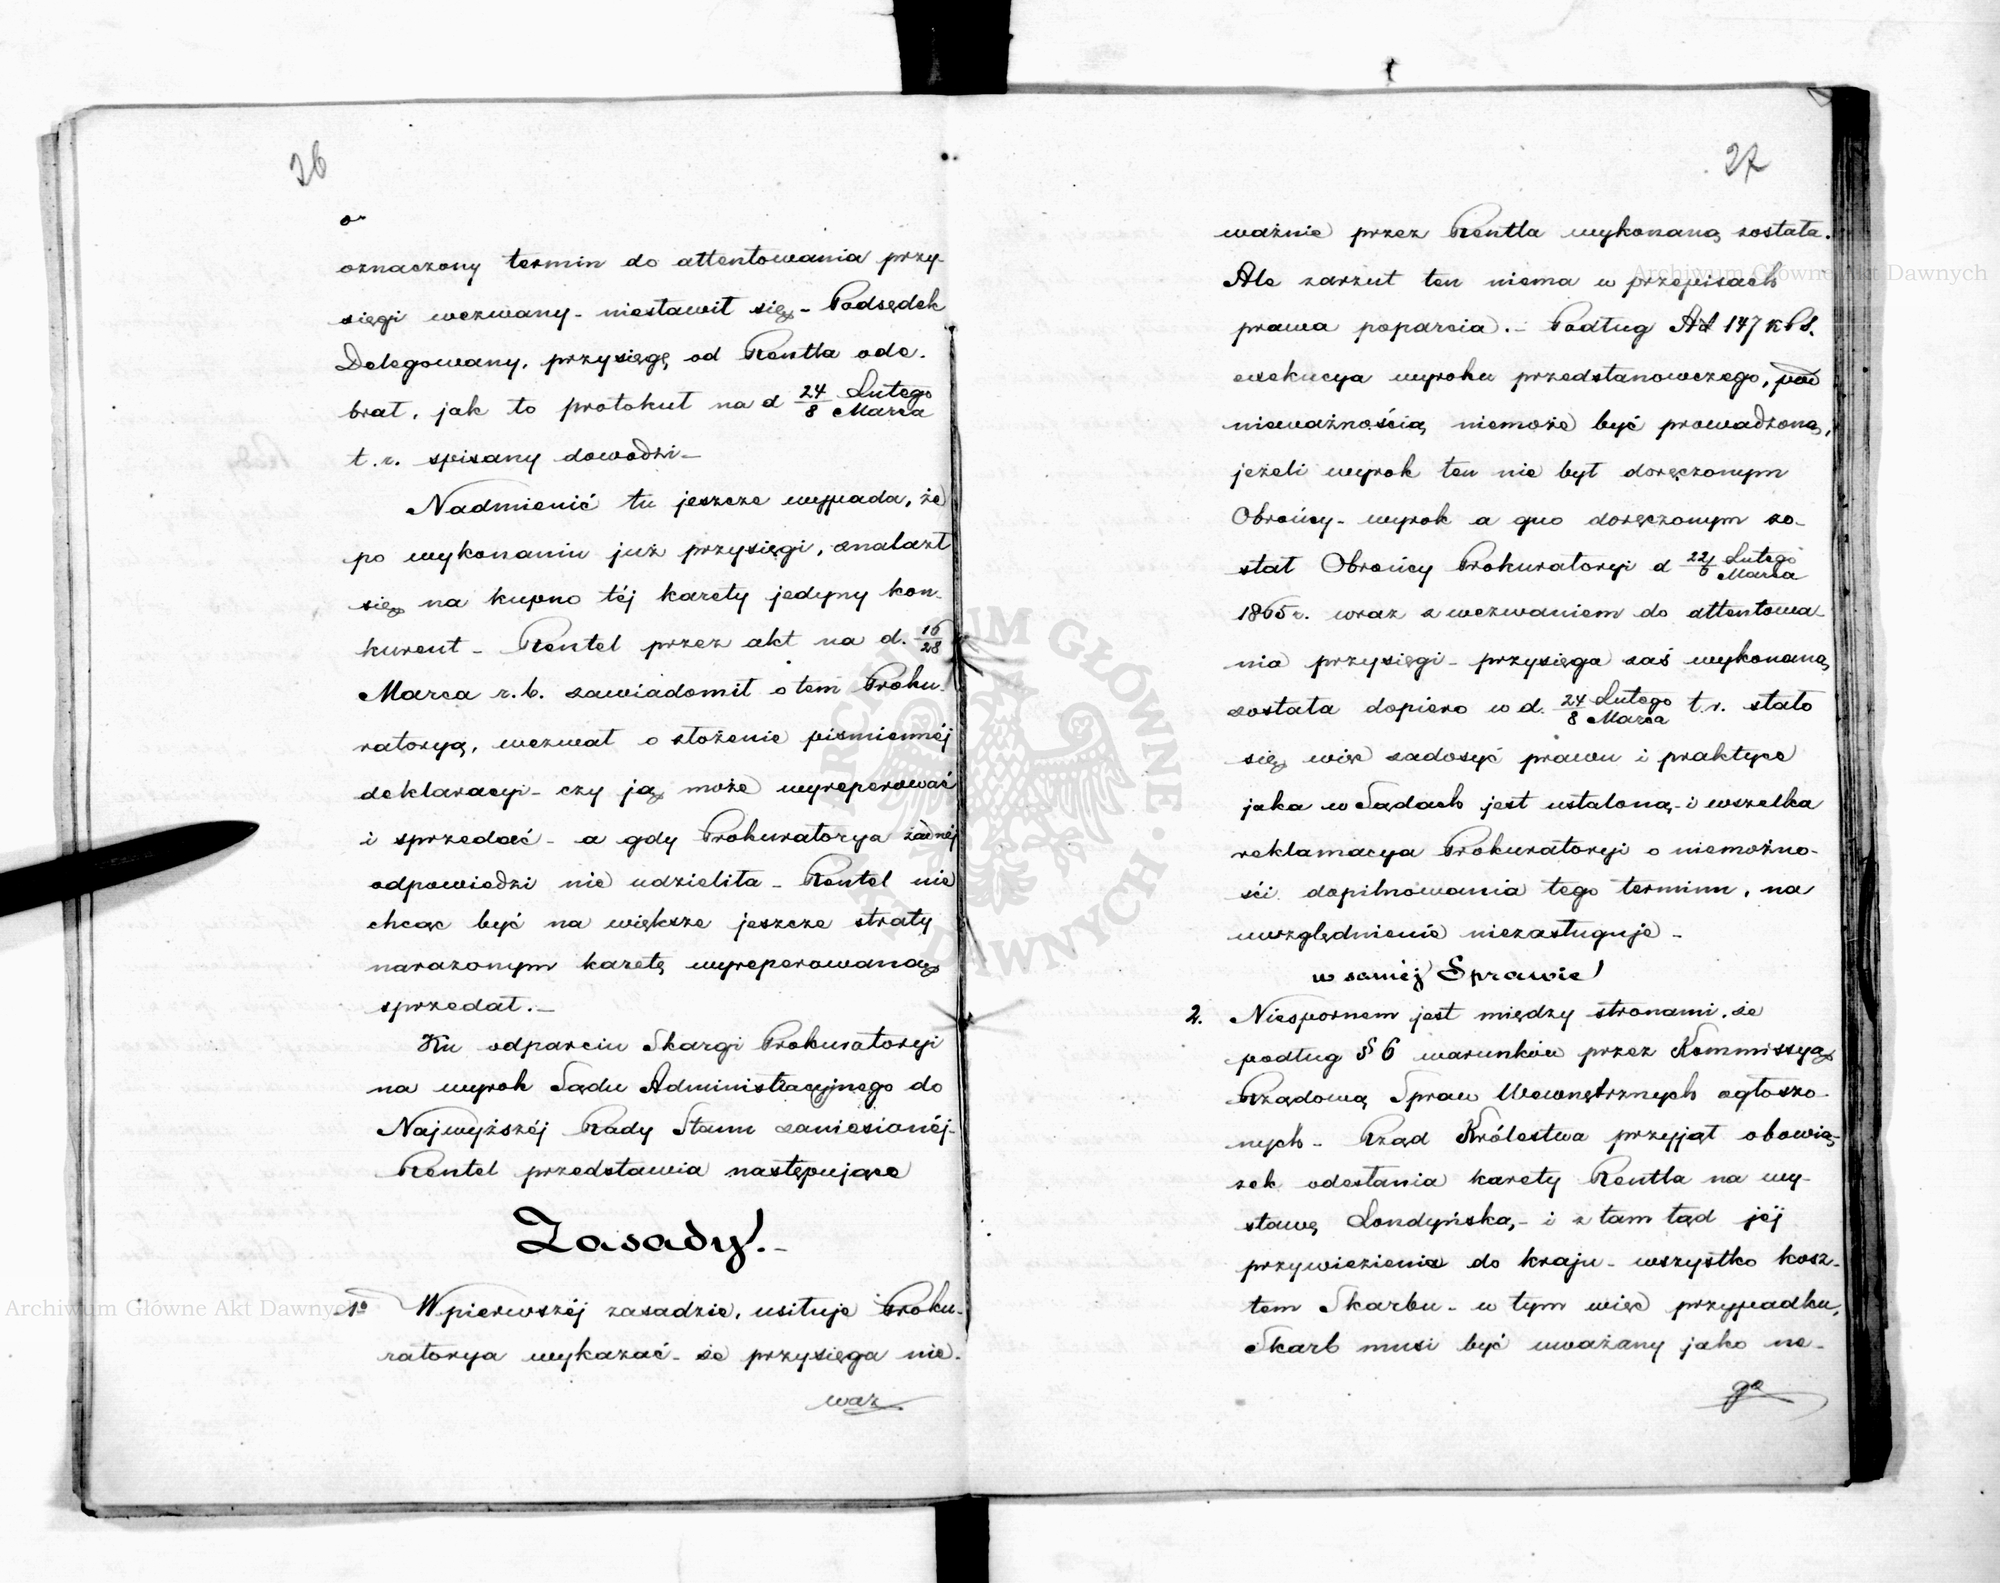 26
o
oznaczony termin do attentowania przy-
sięgi wezwany - niestawił się - Podsędek
Delegowany, przysięgę od Rentla ode-
brał, jak to protokuł na d 24/8 Lutego/Marca
t.r. spisany dowodzi -
Nadmienić tu jeszcze wypada, że
po wykonaniu już przysięgi, znalazł
się na kupno téj karety jedyny kon-
kurent - Rentel przez akt na d. 16/28
Marca r.b. zawiadomił o tem Proku-
ratoryą, wezwał o złożenie piśmiennéj
deklaracyi - czy ją może wyreperować
i sprzedać - a gdy Prokuratorya żadnéj
odpowiedzi nie udzieliła - Rentel nie
chcąc być na większe jeszcze straty
narażonym karetę wyreperowaną
sprzedał. -
Ku odparciu Skargi Prokuratoryi
na wyrok Sądu Administracyjnego do
Najwyższéj Rady Stanu zaniesionéj -
Rentel przedstawia następujące
Zasady! -
1o W pierwszéj zasadzie, usiłuje Proku-
ratorya wykazać - że przysięga nie-
waż
27
ważnie przez Rentla wykonaną została.
Ale zarzut ten niema w przepisach
prawa poparcia. - Podług Art 147 KPS.
exekucya wyroku przedstanowczego, pod
nieważnością niemoże być prowadzoną,
jeżeli wyrok ten nie był doręczonym
Obrońcy - wyrok a quo doręczonym zo-
stał Obrońcy Prokuratoryi d 22/6 Lutego/Marca
1865 r. wraz z wezwaniem do attentowa-
nia przysięgi - przysięga zaś wykonaną
została dopiero w d. 24/8 Lutego/Marca t.r. stało
się więc zadosyć prawu i praktyce
jaka w Sądach jest ustaloną - i wszelka
reklamacya Prokuratoryi o niemożno-
ści dopilnowania tego terminu, na
uwzględnienie niezasługuje -
w saméj Sprawie!
2. Niespornem jest między stronami, że
podług § 6 warunków przez Kommissyą
Rządową Spraw Wewnętrznych ogłoszo-
nych - Rząd Królestwa przyjął obowią-
zek odesłania karety Rentla na wy-
stawę Londyńską, - i z tam tąd jéj
przywiezienia do kraju - wszystko kosz-
tem Skarbu - w tym więc przypadku,
Skarb musi być uważany jako ne-
go
Archiwum Główne Akt Dawnych
Archiwum Główne Akt Dawnych
ARCHIWUM GŁÓWNE AKT DAWNYCH